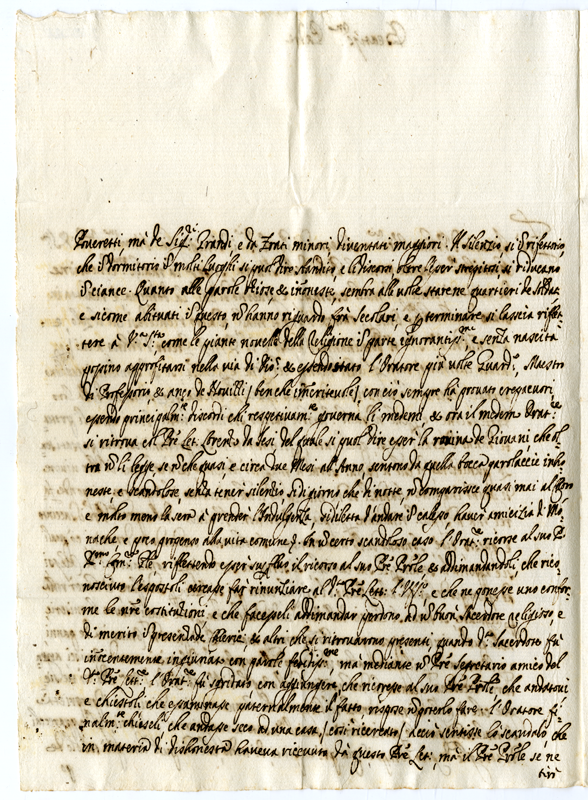 Poveretti, mà de Sig:ri Grandi e da Frati minori diventati maggiori. Il silenzio si in refettorio,
che in Dormitorio in molti Luoghi si può dire bandito, e li discorsi, oltre l'esser strepitosi, si riducano
in ciance. Quanto alle parole otiose, & inhoneste, sembra alle volte starene quartieri de soldati
e sicome abituati in questo, non hanno riguardo frà secolari, e per terminare si lascia riflet
tere à V.ra S.tà come le piante novelle della Religione in parte ignorantiss.me e senza nascita
possino approfittarsi nella via di Dio, & essendo stato l'Oratore più volte Guard.o, Maestro
di Professorio & anco de Novitii (benche immeritevole), con ciò sempre hà provato crepacuori,
essendo principalm.te discordi chi respettivam.te governa li medemi & ora il medem.o Orat.re
si ritrova col Pre Let. Lorenzo da Jesi del quale si può dire esser la rovina de Giovani che ol
tra non li legge se non che quasi e circa due Mesi all'Anno sentono da quella bocca parolaccie inho
neste, e scandolose, senza tener silentio si di giorno che di notte, non comparisce quasi mai al Choro
e molto meno la sera à prender l'Indulgenza, si diletta d'andare in calesso, haver amicizia di Mo
nache e poco propenso alla vita comune. In un certo scandoloso caso l'Orat.re ricorse al suo P.
riflettendo esser superfluo il ricorso al suo Pre Prõle & addimandandoli, che rico
nosciuto l'espostoli cercasse far rinuntiare al d.o Pre Lett. l'Off.o, e che ne ponesse uno confor
me le nre costitutioni e che facesseli addimandar perdono, ad un buon sacerdote religioso, e
di merito in presenza de Chierici & altri che si ritrovarono presenti, quando d.o sacerdote fù
innocentemente ingiuriato con parole fetidiss.me, ma mediante un Pre Secretario amico del
d.o Pre Let. l'Orat.re fù sgridato con aggiungere che ricorresse al suo Pre Prõle che andatovi
e chiestoli che esaminasse paternalmente il fatto rispose non poterlo fare. l'Oratore fi
nalm.te chieseli che andasse seco ad una casa (così ricercato) acciò sentisse lo scandalo, che
in materia di dishonestà haveva ricevuto dà questo Pre Let. mà il Pre Prõle se ne